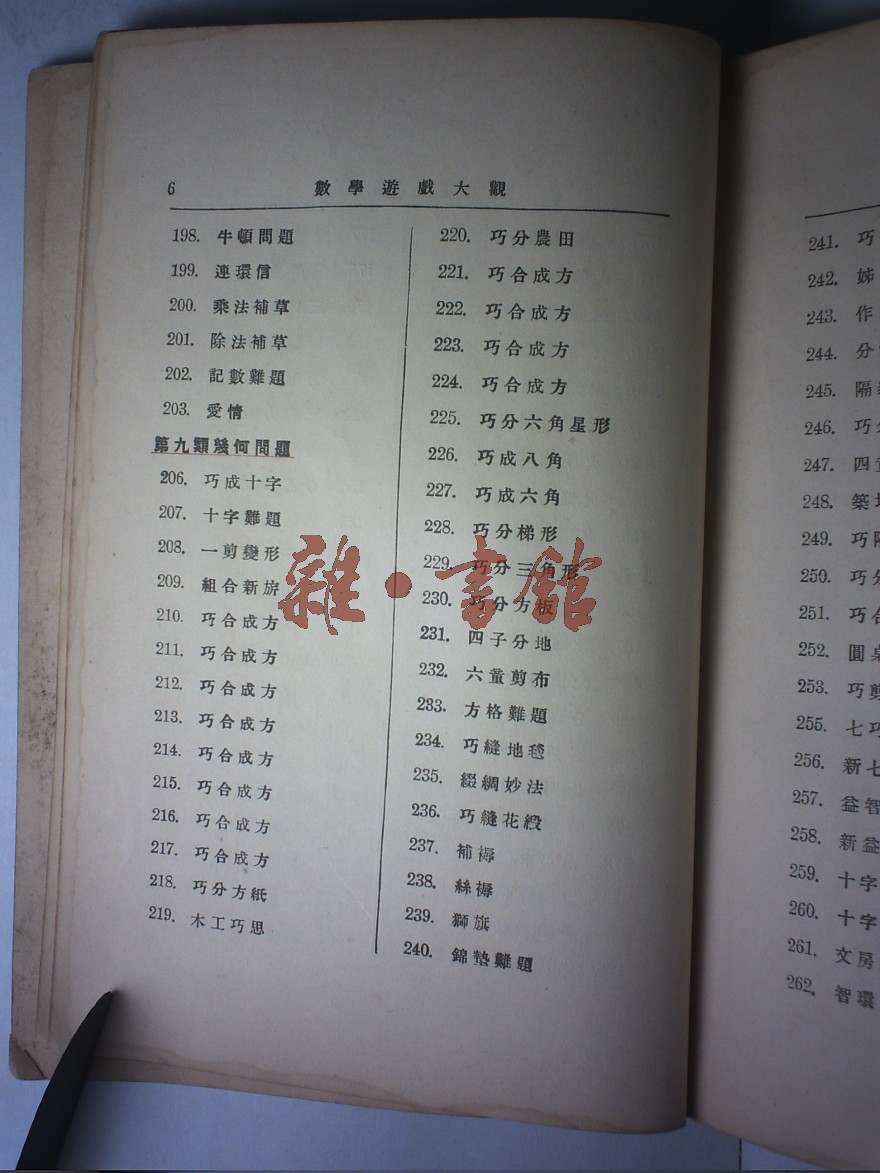 6 數學遊戲大觀
198. 牛頓問題
199. 連環信
200. 乘法補草
201. 除法補草
202. 記數難題
203. 愛情
第九類幾何問題
206. 巧成十字
207. 十字難題
208. 一剪變形
209. 組合新旂
210. 巧合成方
211. 巧合成方
212. 巧合成方
213. 巧合成方
214. 巧合成方
215. 巧合成方
216. 巧合成方
217. 巧合成方
218. 巧分方紙
219. 木工巧思
220. 巧分農田
221. 巧合成方
222. 巧合成方
223. 巧合成方
224. 巧合成方
225. 巧分六角星形
226. 巧成八角
227. 巧成六角
228. 巧分梯形
229. 巧分三角形
230. 巧分方板
231. 四子分地
232. 六童剪布
233. 方格難題
234. 巧縫地毯
235. 綴綢妙法
236. 巧縫花緞
237. 補褥
238. 絲褥
239. 獅旗
240. 錦墊難題
雜·書館
241. 巧
242. 姊
243. 作
244. 分
245. 隔
246. 巧分
247. 四童
248. 築
249. 巧隔
250. 巧分
251. 巧合
252. 圓桌
253. 巧剪
255. 七巧
256. 新七
257. 益智
258. 新益
259. 十字
260. 十字
261. 文房
262. 智環